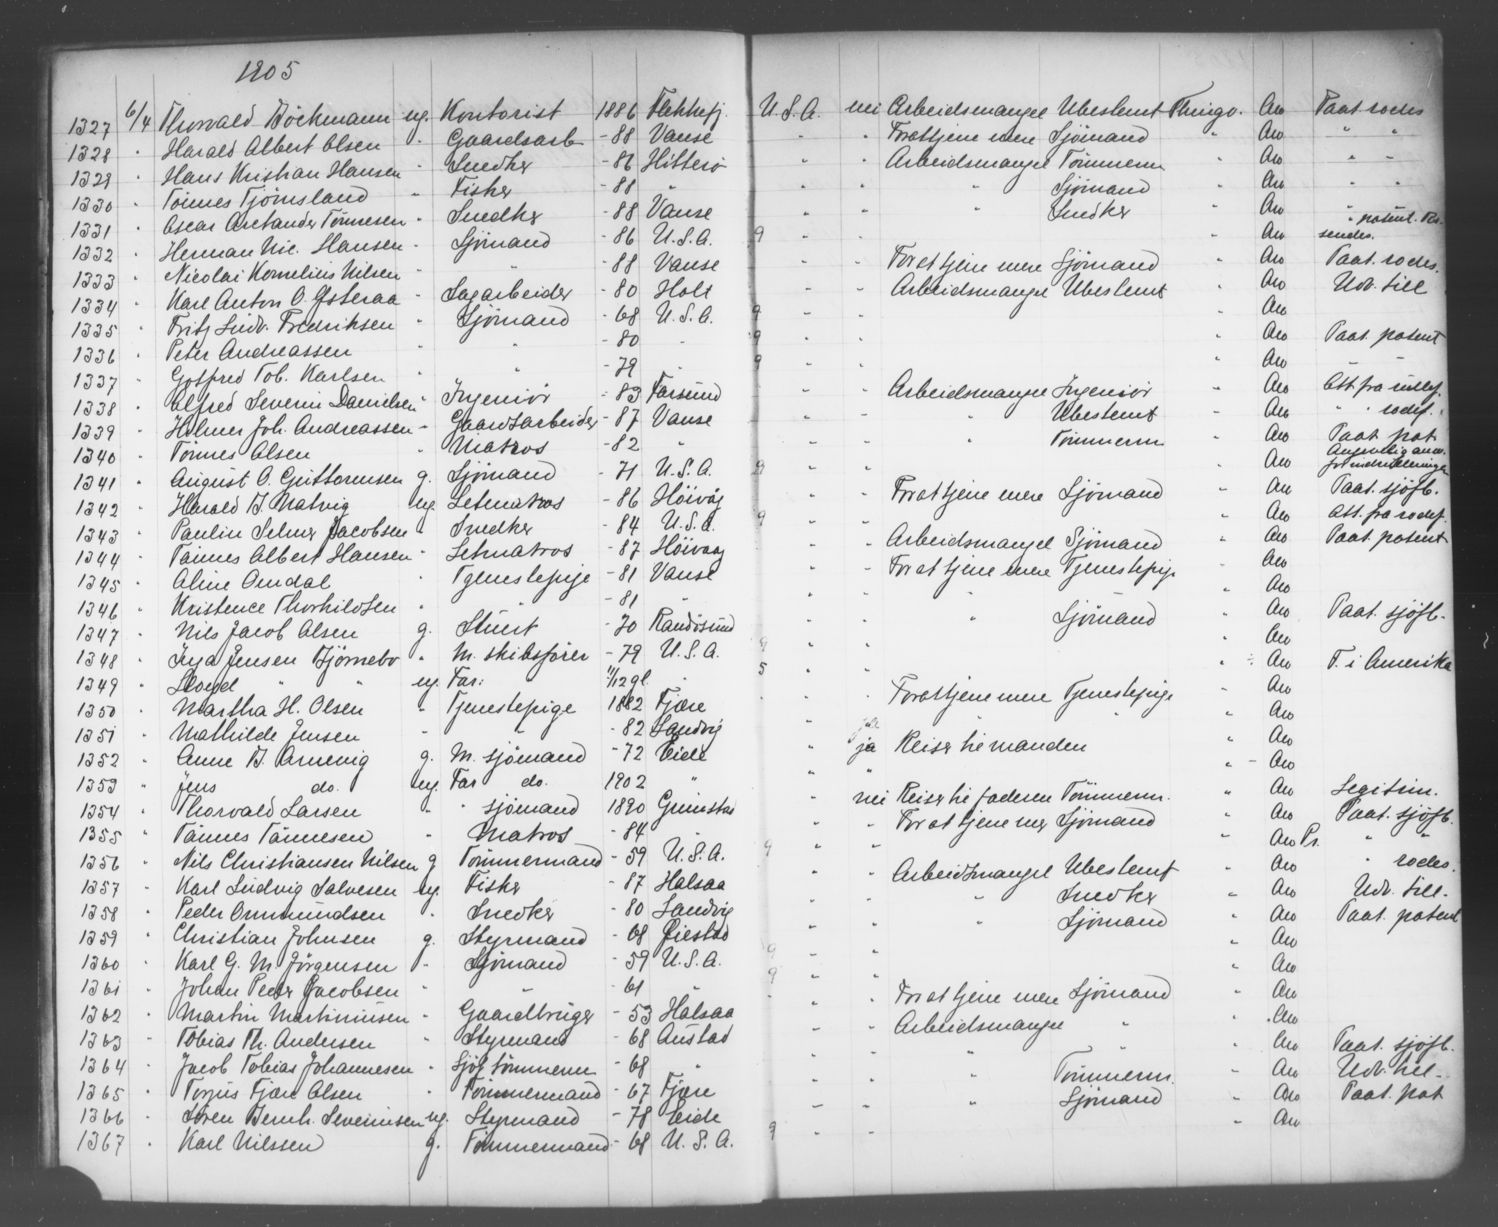 1905
1327 6/4 Thorvald Böckmann ug. Kontorist 1886 Flekkefj. U.S.A. nei Arbeidsmangel Ubestemt Thingv. Aro Paat. rodes
1328 " Harald Albert Olsen " Gaardsarb - 88 Vanse " " Fortjene mere Sjömand " Aro " "
1329 " Hans Kristian Hansen " Snedker - 86 Hitterö " " Arbeidsmangel Tömmerm " Aro " "
1330 " Tönnes Tjömsland " Fisker - 88 " " " " Sjömand Aro " "
1331 " Oscar Anetander Tönnesen " Snedker - 88 Vanse " " " Snedker Aro " patent. Rs.
1332 " Herman Nic. Hansen " Sjömand - 86 U.S.A. 9 " " " Aro sendes.
1333 " Nicolai Kornelius Nilsen " " - 88 Vanse " " For at tjene mere Sjömand " Aro Paat. rodes.
1334 " Karl Anton O. Østeraa " Sagarbeider - 80 Holt " " Arbeidsmangel Ubestemt " Aro Udv. till
1335 " Fritz Ludv. Fredriksen " Sjömand - 68 U.S.A. 9 Aro
1336 " Peter Andreassen " " - 80 " 9 " Aro Paat. patent
1337 " Gotfred Tob. Karlsen " " - 79 " 9 " Aro " "
1338 " Alfred Severin Danielsen " Ingeniör - 83 Farsund " " Arbeidsmangel Ingeniör " Aro Att. fra rullef.
1339 " Hilmer Joh. Andreassen " Gaardsarbeider - 87 Vanse " " " Ubestemt " Aro " " rodef.
1340 " Tönnes Olsen " Matros - 82 " " " " Tömmerm " Aro Paat. pat
1341 " August O. Guttormsen g. Sjömand - 71 U.S.A. 9 " " Aro
1342 " Harald B. Natvig ug. Letmatros - 86 Höivåg " " For at tjene mere Sjömand " Aro Paat. sjöfb.
1343 " Paulin Selmer Jacobsen " Snedker - 84 U.S.A. 9 " " " Aro Att. fra rodef.
1344 " Tönnes Albert Hansen " Letmatros - 87 Höivaag " " Arbeidsmangel Sjömand " Aro Paat. patent
1345 " Aline Omdal " Tjenestepige - 81 Vanse " " For at tjene mere Tjenestepige " Aro
1346 " Kristence Thorkildsen " " - 81 " " " " " Aro
1347 " Nils Jacob Olsen g. Stuert - 70 Randösund " " " Sjömand " Aro Paat. sjöfb.
1348 " Inga Jensen Björnebo " M. skibsfører - 79 U.S.A. 9 " " Aro
1349 " Lloyd " " ug. Far: 11/12 gl. " 5 " " " Aro F. i Amerika
1350 " Martha H. Olsen " Tjenestepige 1882 Fjære " " For at tjene mere Tjenestepige " Aro
1351 " Mathilde Jensen " " - 82 Landvig " ja " " " Aro
1352 " Anne B. Arnevig g. M. sjömand - 72 Eide " ja Reiser til manden " Aro
1353 " Jens do. ug. Far do. 1902 " " " " Aro
1354 " Thorvald Larsen " " sjömand 1890 Grimstad " nei Reiser til faderen Tömmerm. " Aro Legitim.
1355 " Tönnes Tönnesen " Matros - 84 " " " For at tjene mer Sjömand " Aro Paat. sjöfb.
1356 " Nils Christiansen Nilsen g Tömmermand - 59 U.S.A. 9 " " " Aro Ps. " "
1357 " Karl Ludvig Salvesen ug. Fisker - 87 Halsaa " " Arbeidsmangel Ubestemt " Aro " rodes.
1358 " Peder Ommundsen " Snedker - 80 Landvig " " " Snedker " Aro Udv. till.
1359 " Christian Johnsen g. Styrmand - 68 Øiestad " " " Sjömand " Aro Paat. patent
1360 " Karl G. M. Jörgensen " Sjömand - 59 U.S.A. 9 " " " Aro
1361 " Johan Peder Jacobsen " " - 61 " 9 " " " Aro
1362 " Martin Martiniusen " Gaardbruger - 53 Halsaa " " For at tjene mere Sjömand " Aro
1363 " Tobias Th. Andersen " Styrmand - 68 Austad " " Arbeidsmangel " " Aro
1364 " Jacob Tobias Johannesen " Sjöf tömmerm - 68 " " " " " Aro Paat. sjöfb.
1365 " Torjus Fjære Olsen " Tömmermand - 67 Fjære " " " Tömmerm " Aro Udv. till.
1366 " Sören Bernh. Severinsen ug. Styrmand - 78 Eide " " " Sjömand " Aro Paat. pat
1367 " Karl Nilssen g. Tömmermand - 68 U.S.A. 9 " " " Aro